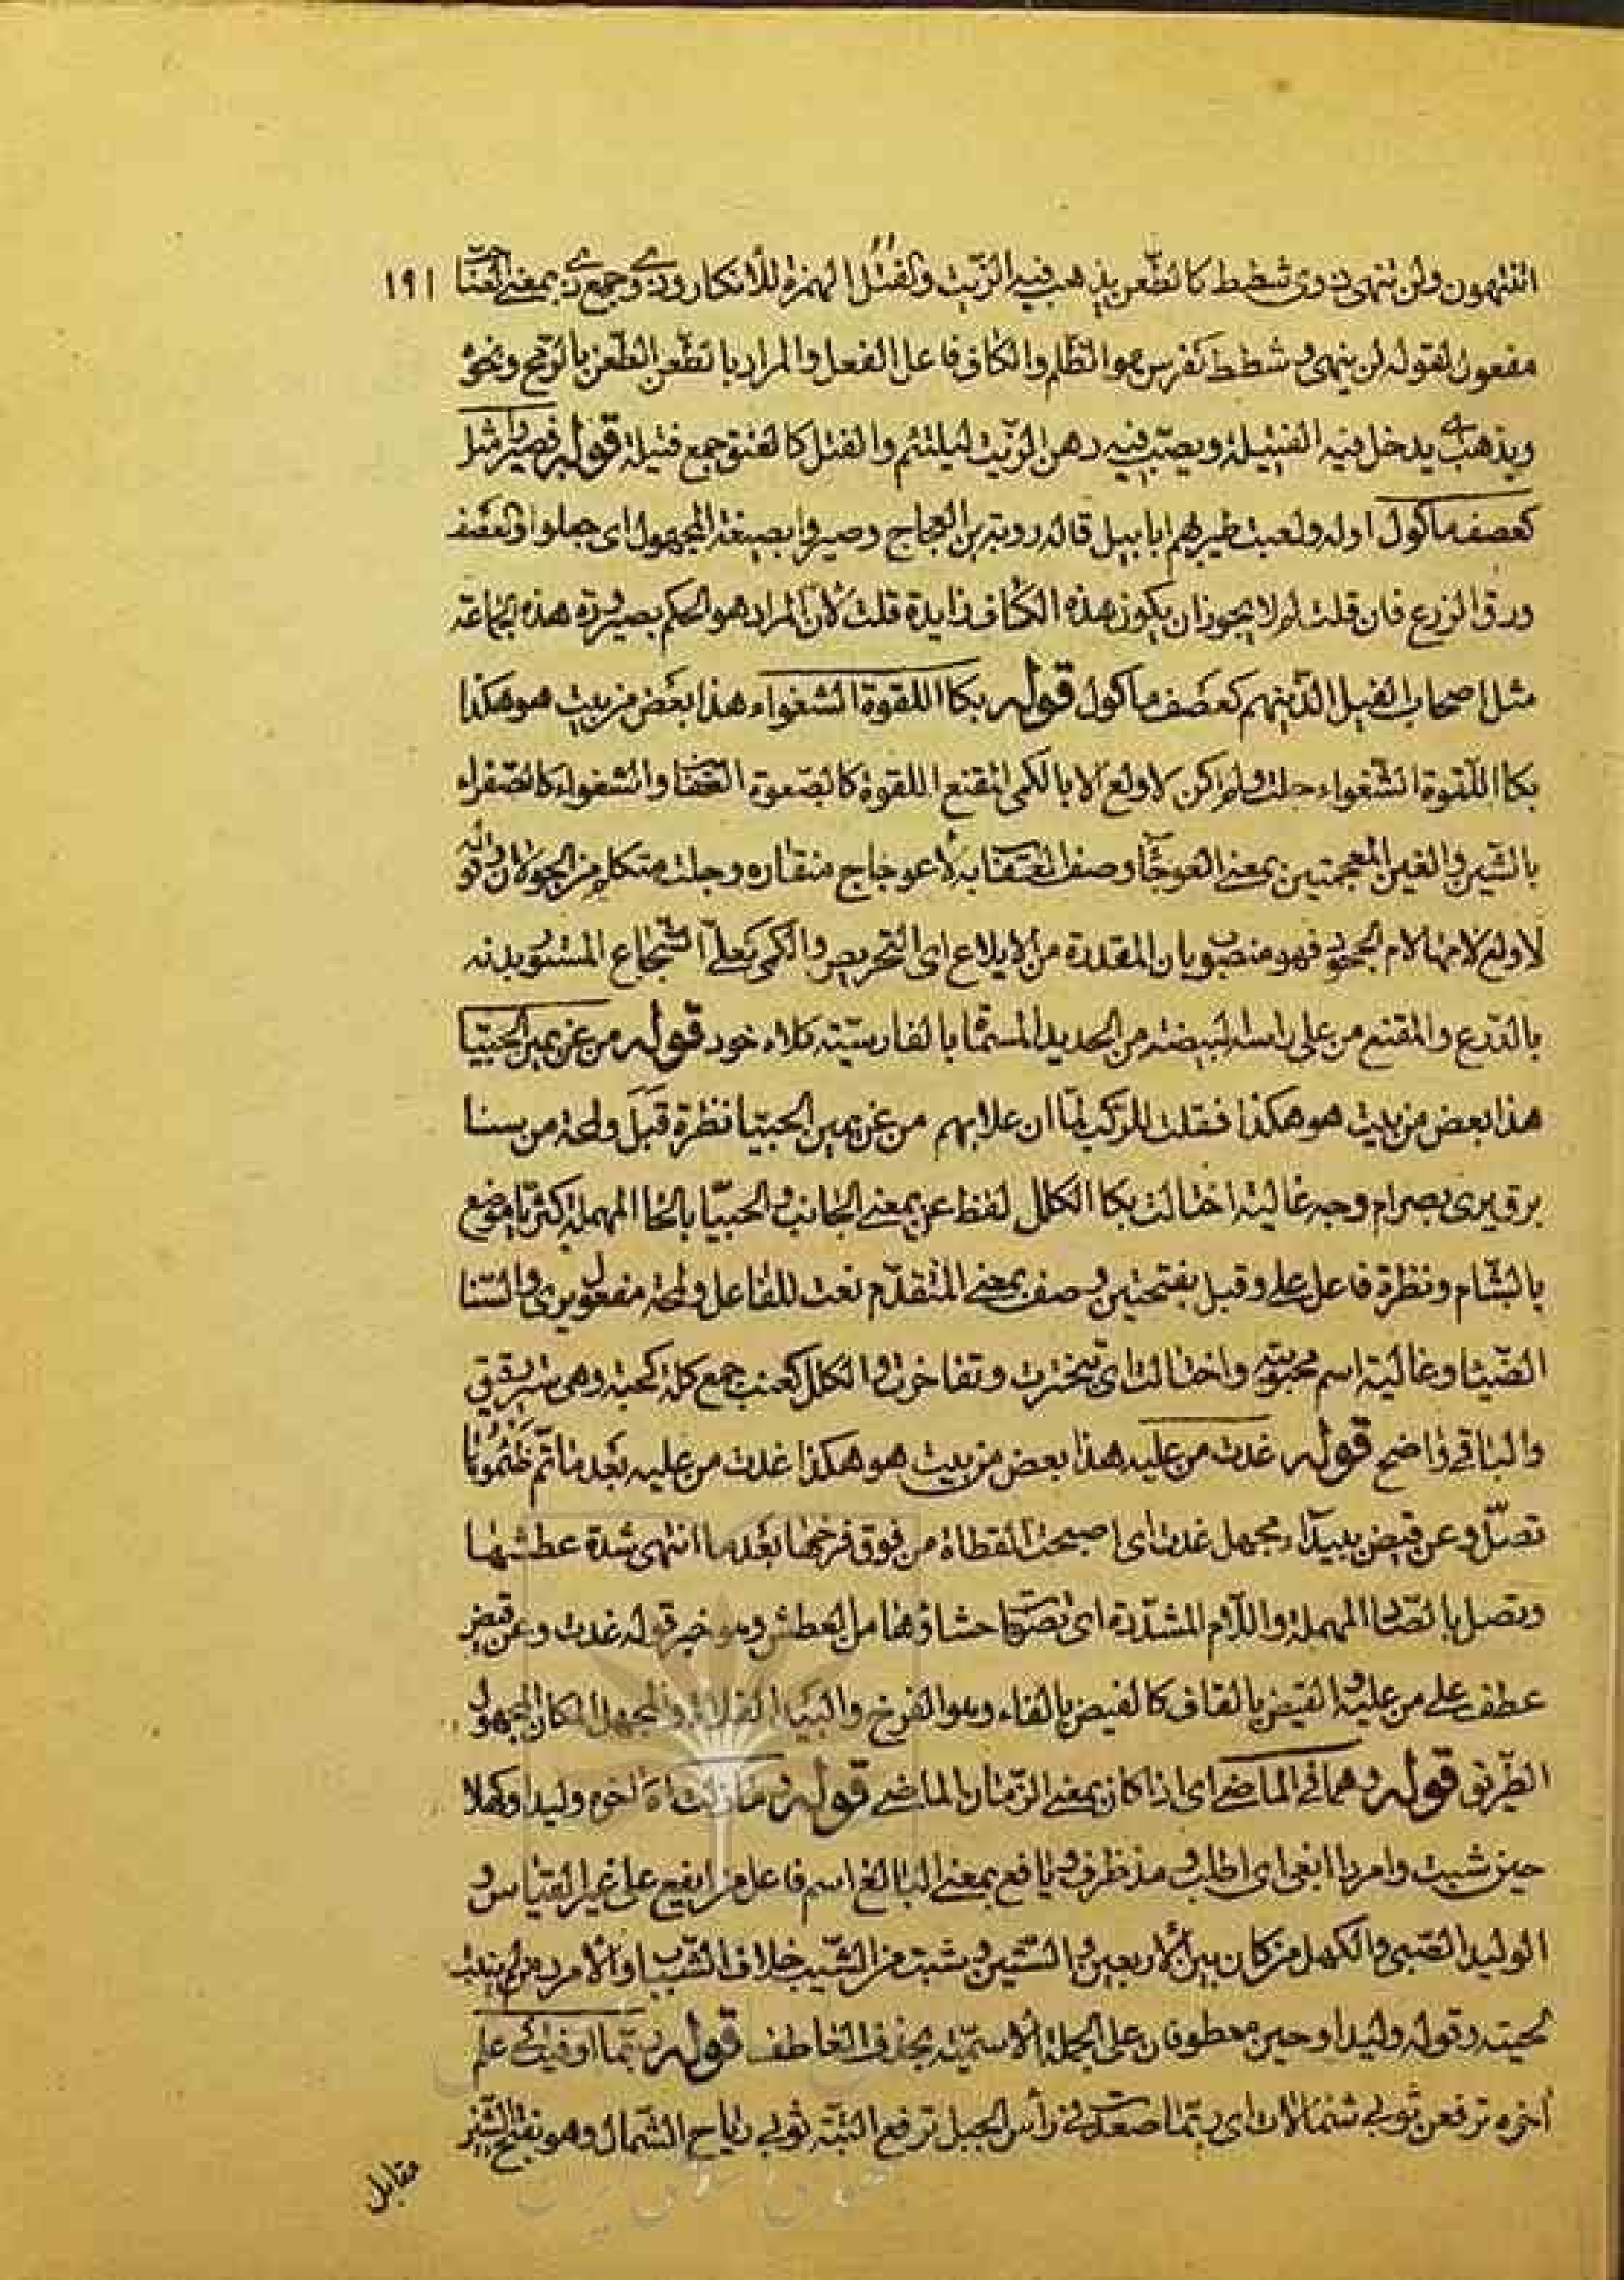 اتنتهون ولن تنهى ذوى شطط كالطعن يذهب فيه الزيت والفتل الهمزة للأنكار وذوى جمع ذى بمعنى صاحب ١٩١
مفعول لقوله لن ينهى وشطط كفرس هو الظلم والكاف فاعل الفعل والمراد بالطعن الطعن بالرمح ونحو
ويذهب يدخل فيه الفتيلة ويصب فيه دهن الزيت ليلتئم والفتل كالعنق جمع فتيلة قوله فصيروا مثل
كعصف مأكول اوله ولعبت طير بهم ابابيل قاله روبة بن العجاج وصيروا بصيغة المجهول اى جعلوا والعصف
ورق الزرع فان قلت لم لا يجوز ان يكون هذه الكاف زايدة قلت لأن المراد هو الحكم بصيرورة هذه الجماعة
مثل اصحاب الفيل الذينهم كعصف مأكول قوله بكا اللقوة الشغواء هذا بعض من بيت هو هكذا
بكا اللقوة الشغواء جلت ولم اكن لاولع الا بالكمى المقنع اللقوة كالصعوة العقاب والشغواء كالصفراء
بالشين والغين المعجمتين بمعنى العوجاء وصف العقاب به لأعوجاج منقاره وجلت متكلم من الجولان وقوله
لاولع لامها لام الجحود فهو منصوب بان المقدرة من الايلاع اى التحريص والكمى كعلى الشجاع المستور بدنه
بالدرع والمقنع من على راسه البيضة من الحديد المسمى بالفارسية كلاه خود قوله من عن يمين الحبيا
هذا بعض من بيت هو هكذا فقلت للركب لما ان علا بهم من عن يمين الحبيا نظرة قبل ولمحة من سنا
برق يرى بصرى ام وجه عالية اختالت بكا الكلل لفظ عن بمعنى الجانب والحبيا بالحاء المهملة كثريا موضع
بالشام ونظرة فاعل على وقبل بفتحتين وصف بمعنى المتقدم نعت للفاعل ولمحة مفعول يرى والسنا
الضياء وعالية اسم محبوبته واختالت اى تبخترت وتفاخرت والكلل كعنب جمع كلة كحبة وهى ستر رقيق
والباقى واضح قوله غدت من عليه هذا بعض من بيت هو هكذا غدت من عليه بعد ما تم ظمؤها
تصل وعن قيض ببيداء مجهل غدت اى اصبحت القطاة من فوق فرخها بعد ما انتهى شدة عطشها
وتصل بالصاد المهملة واللام المشددة اى تصوت احشاؤها من العطش وهو خبر قوله غدت وعن قيض
عطف على من عليه والقيض بالقاف كالفيض بالفاء وهو الفرخ والبيداء الفلاة والمجهل المكان المجهول
الطريق قوله وهما فى الماضى اى اذا كان بمعنى الزمان الماضى قوله وما زلت اه اخره وليدا وكهلا
حين شبت وامردا ابغى اى اطلب ومذ ظرف ويافع بمعنى البالغ اسم فاعل من ايفع على غير القياس و
الوليد الصبى والكهل من كان بين الأربعين والستين وشبت من الشيب خلاف الشباب والأمرد من لم ينبت
لحيته وقوله وليدا وحين معطوفان على الجملة الاسمية بحذف العاطف قوله ربما اوفيت فى علم
اخره ترفعن ثوبى شمالات اى ربما صعدت فى رأس الجبل ترفع البتة ثوبى رياح الشمال وهو بفتح الشين
مقابل